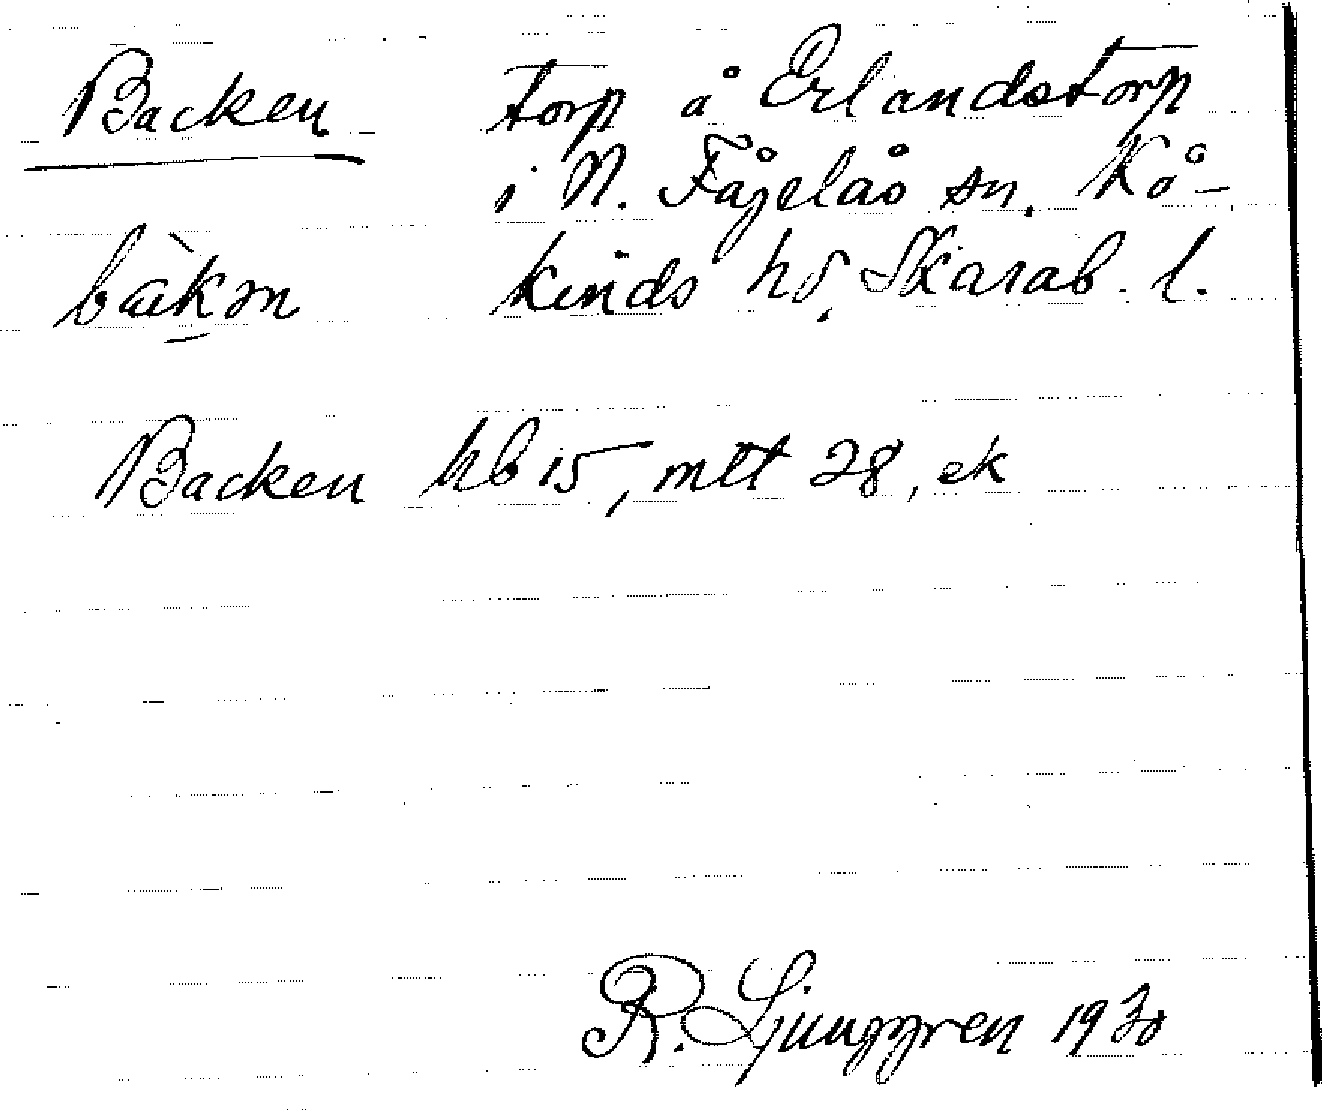 Backen torp å Erlandstorp
i N. Fågelås sn, Kå-
bàkən kinds hd, Skarab. l.
Backen hb 15, mtt 28, ek
R. Ljunggren 1930